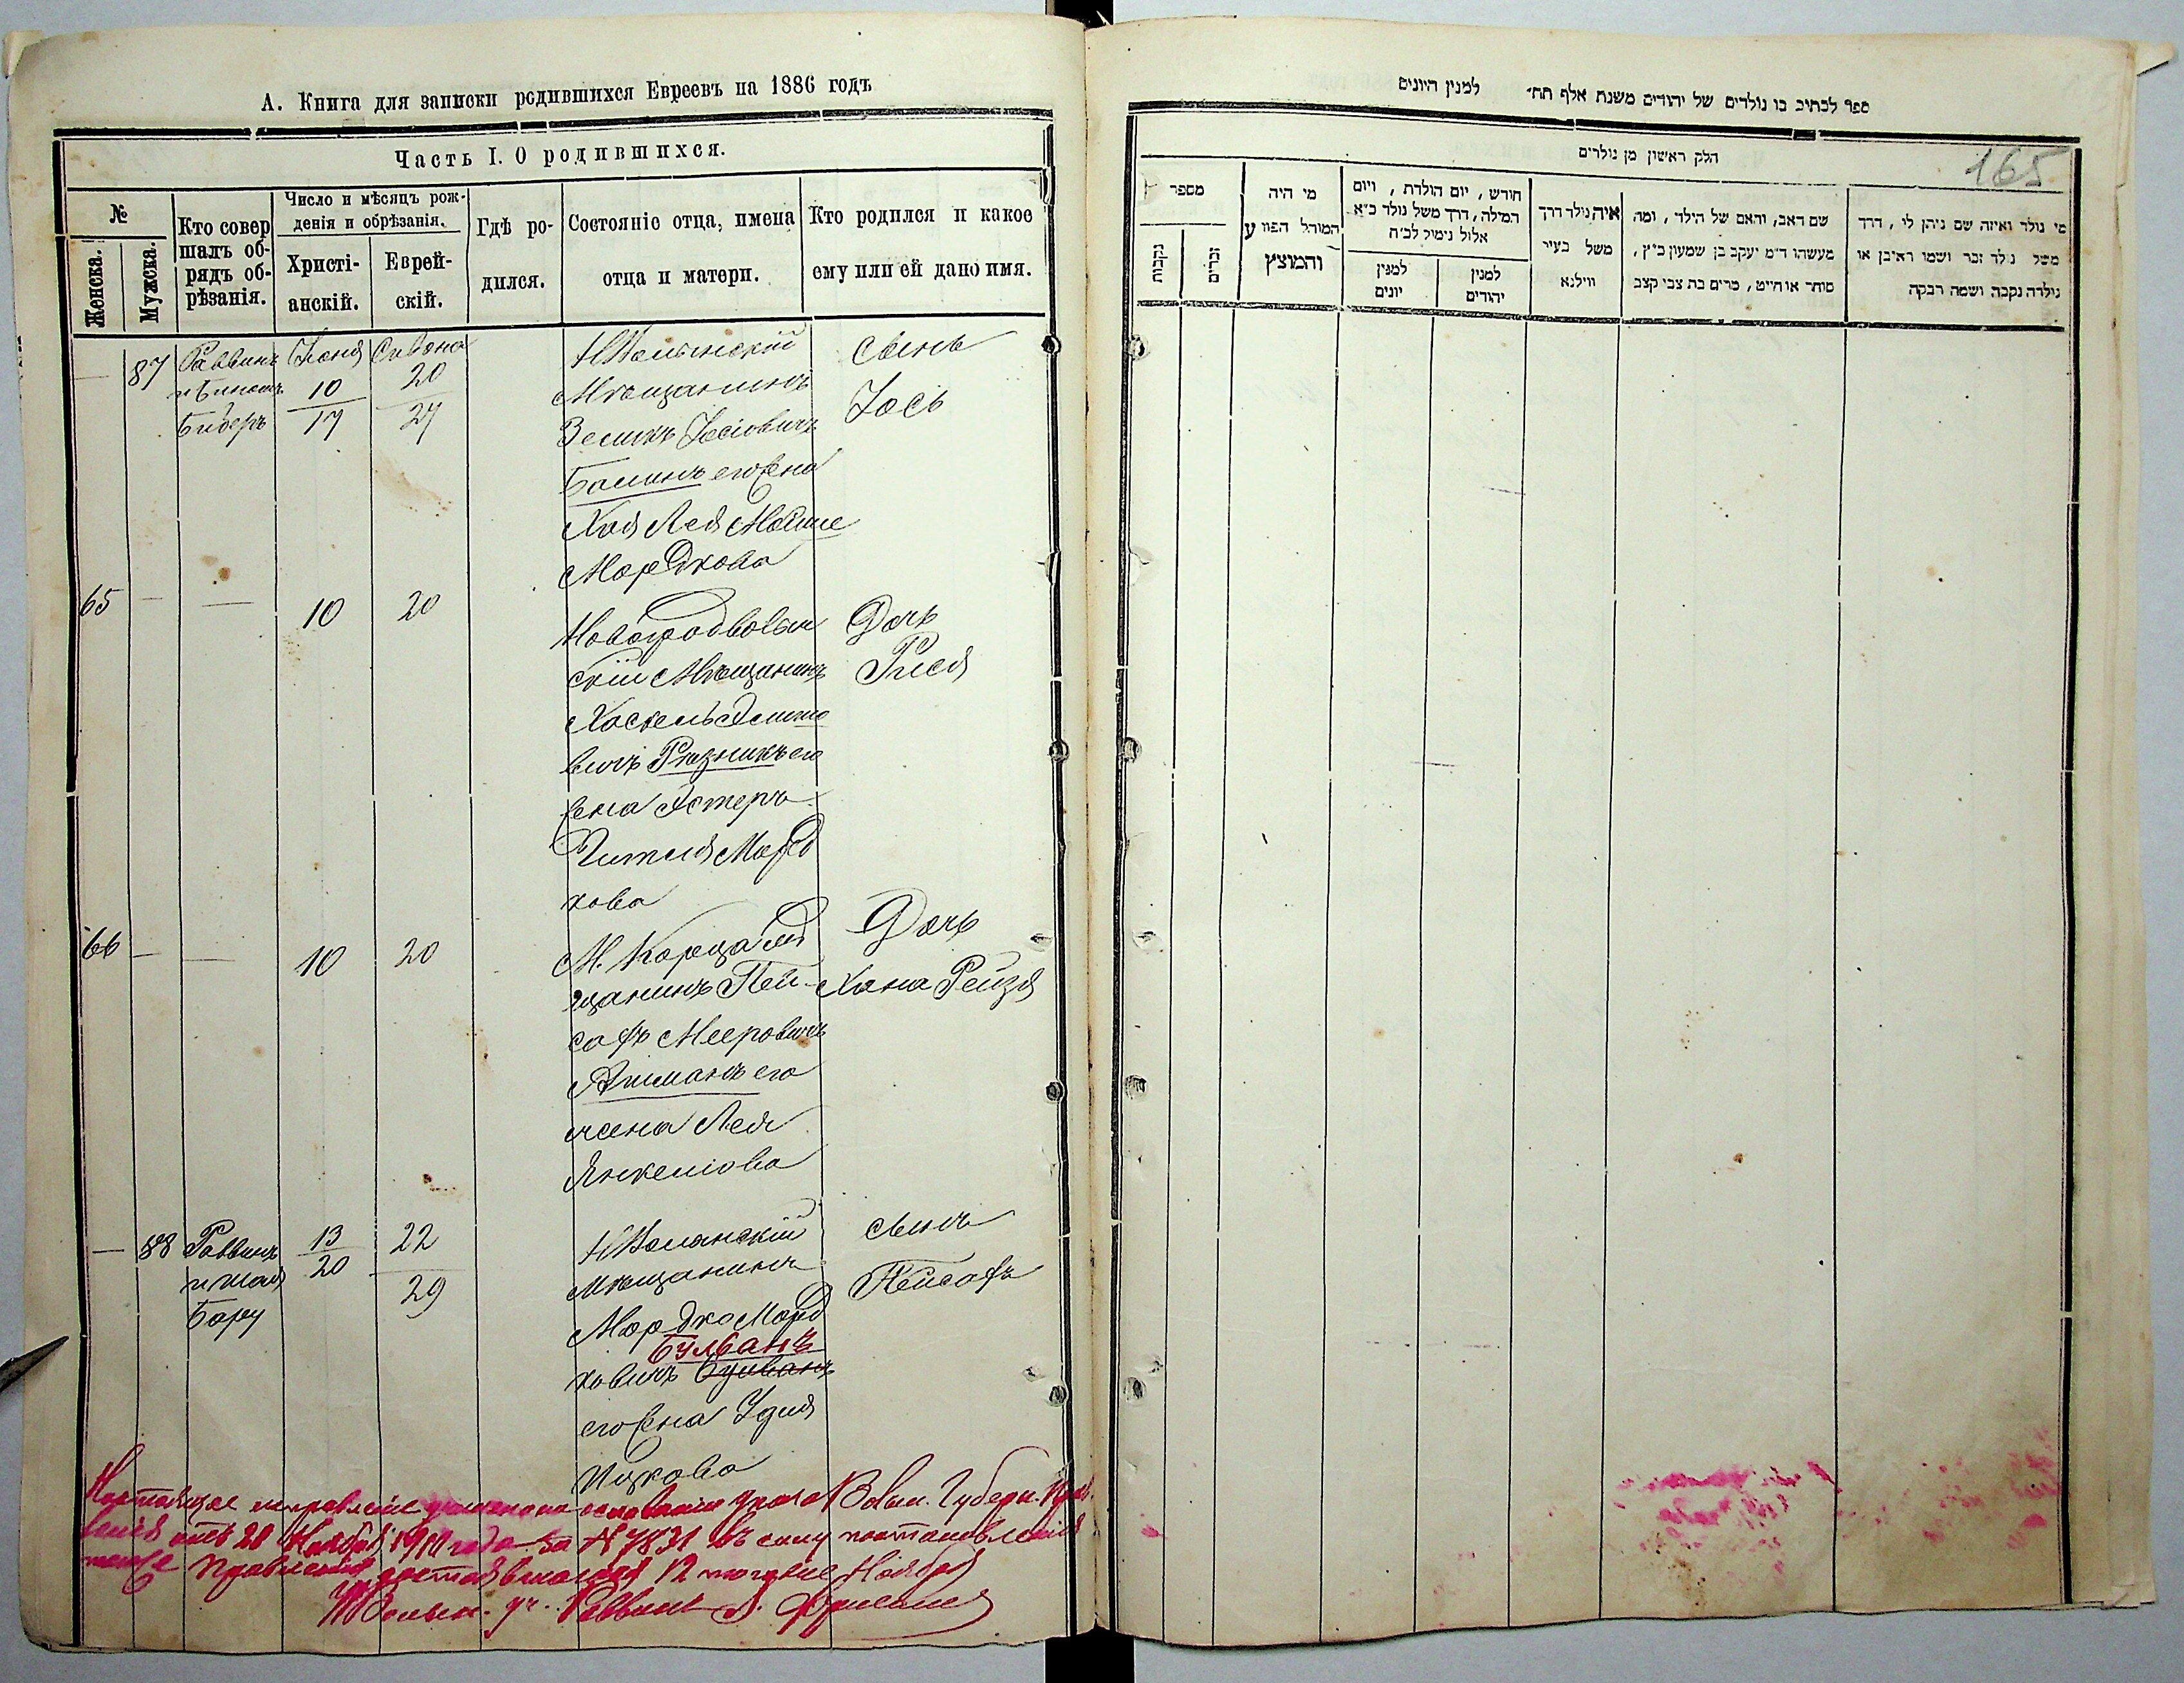 А. Книга для записки родившихся Евреевъ на 1886 годъ
Часть I. О родившихся.
№
Женска.
Мужска.
Кто совер
шалъ об-
рядъ об-
рѣзанія.
Число и мѣсяцъ рож-
денія и обрѣзанія.
Христі-
анскій.
Еврей-
скій.
Гдѣ ро-
дился.
Состояніе отца, имена
отца и матери.
Кто родился и какое
ему или ей дано имя.
— 87 Раввинъ
Бидеръ
Іюня
10
17
Сивона
20
27
НВолынскій
Мѣщанинъ
Зелихъ Іосіовичъ
его жена
Хая Лея Мойше
Мордкова
сынъ
Іось
65 — — 10 20
Новоградволын
скій Мѣщанинъ
Хаскель
вичъ Рѣзникъ его
жена Эстеръ
Гитля Морд
хова
Дочь
Рися
66 — — 10 20
М. Корца мѣ
щанинъ Пей-
сафъ Мееровичъ
его
жена Лея
Янкеліова
Дочь
Хана Рейзя
— 88 Раввинъ
и Шая
Бару
13
20
22
29
НВолынскій
мѣщанинъ
Мордко Морд
Бульванъ
ковичъ Бульванъ
его жена Удля
Ицкова
сынъ
Пейсафъ
Настоящее исправленіе учинено на основаніи указа Волын. Губерн. Прав
ленія отъ 20 Ноября 1910 года за № 7831 въ силу постановленія
того же Правленія состоявшагося 12 того же Ноября
НВолын. уч. Раввинъ
ספר לכתיב בו נולדים של יהודים משנת אלף תח׳ למנין היונים
חלק ראשון מן נולדים
165
מספר
נקבות
זכרים
מי היה
המוהל הפורע
והמוצץ
חודש, יום הולדת, ויום
המילה, דרך משל נולד כ״א
אלול נימול לכ״ח
למנין
יונים
למנין
יהודים
איה נולד דרך
משל בעיר
ווילנא
שם האב, והאם של הילד, ומה
מעשהו ד״מ יעקב בן שמעון כ״ץ,
סוחר או חייט, מרים בת צבי קצב
מי נולד ואיזה שם ניתן לו, דרך
משל נולד זכר ושמו ראיבן או
נולדה נקבה ושמה רבקה